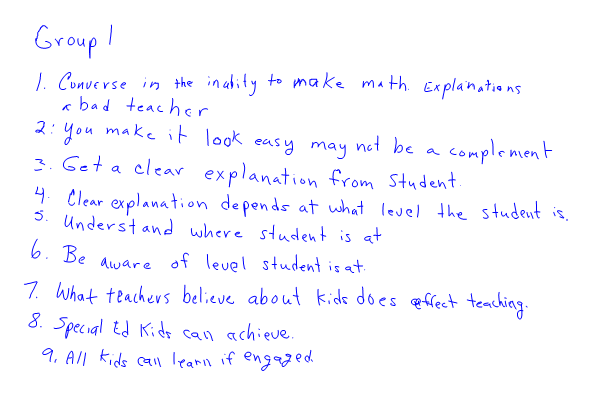 Group 1
1. Converse in the inality to make math. Explanations
a bad teacher
2: you make it look easy may not be a complement
3. Get a clear explanation from Student.
4. Clear explanation depends at what level the student is.
5. Understand where student is at
6. Be aware of level student is at.
7. What teachers believe about kids does effect teaching.
8. Special Ed Kids can achieve.
9. All kids can learn if engaged.